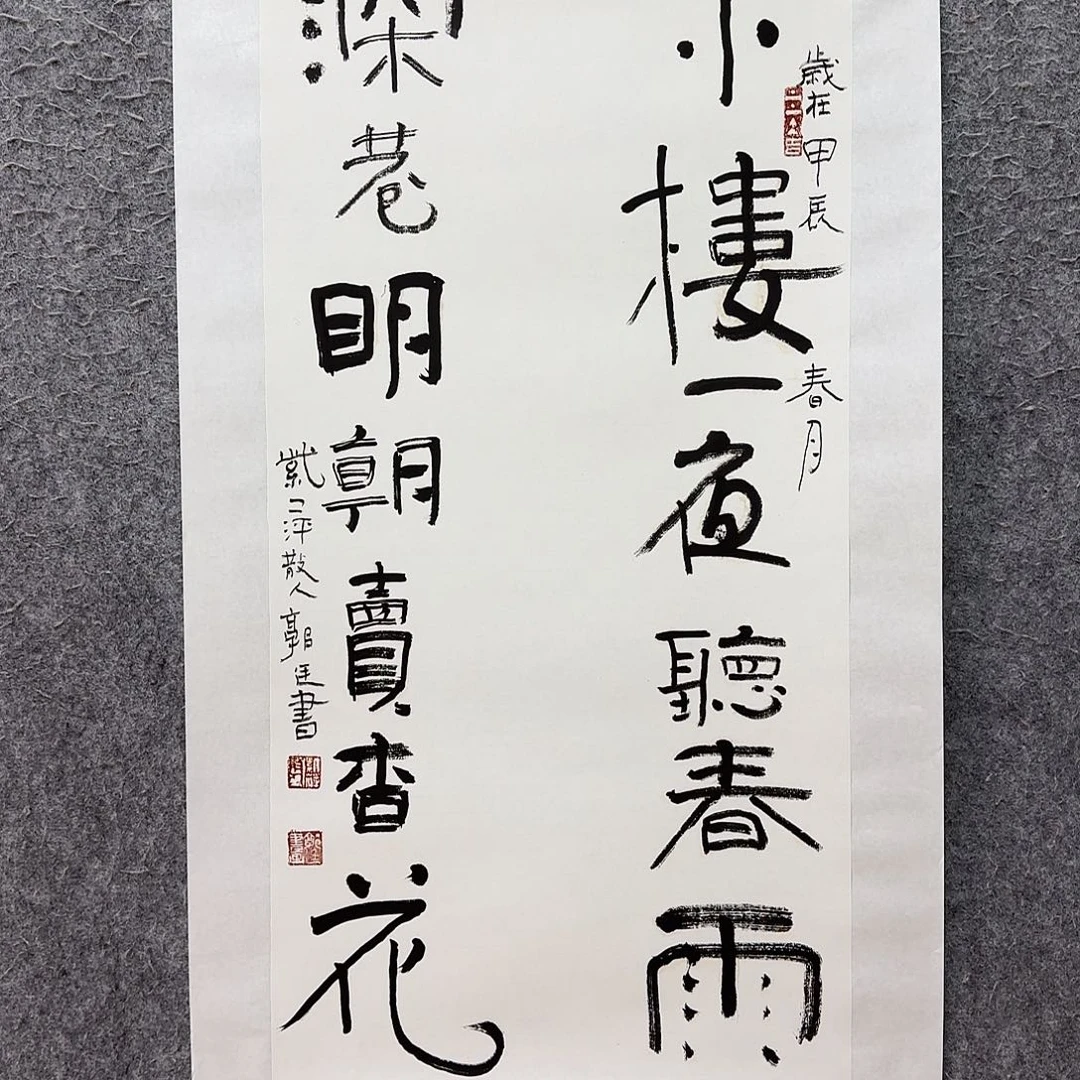 歲在甲辰春月
小樓一夜聽春雨
深巷明朝賣杏花
散人郭廷書